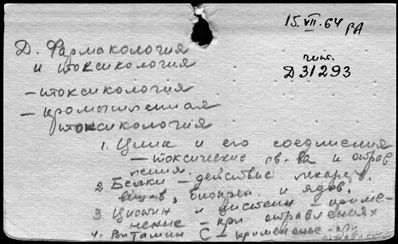 15.VII.64 РА
Д. Фармакология
и токсикология
чит.
Д 31293
– токсикология
– промышленная
токсикология
1. Цинк и его соединения
– токсические св-ва и отрав
ления.
2 Белки – действие лекарств.
веществ, и ядов,
3 Цистин и цистеин – приме-
нение – при отравлениях
4. Витамин С – применение – при